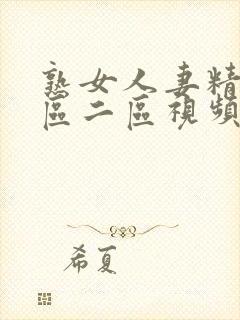 熟女人妻精
區二區視頻
希夏